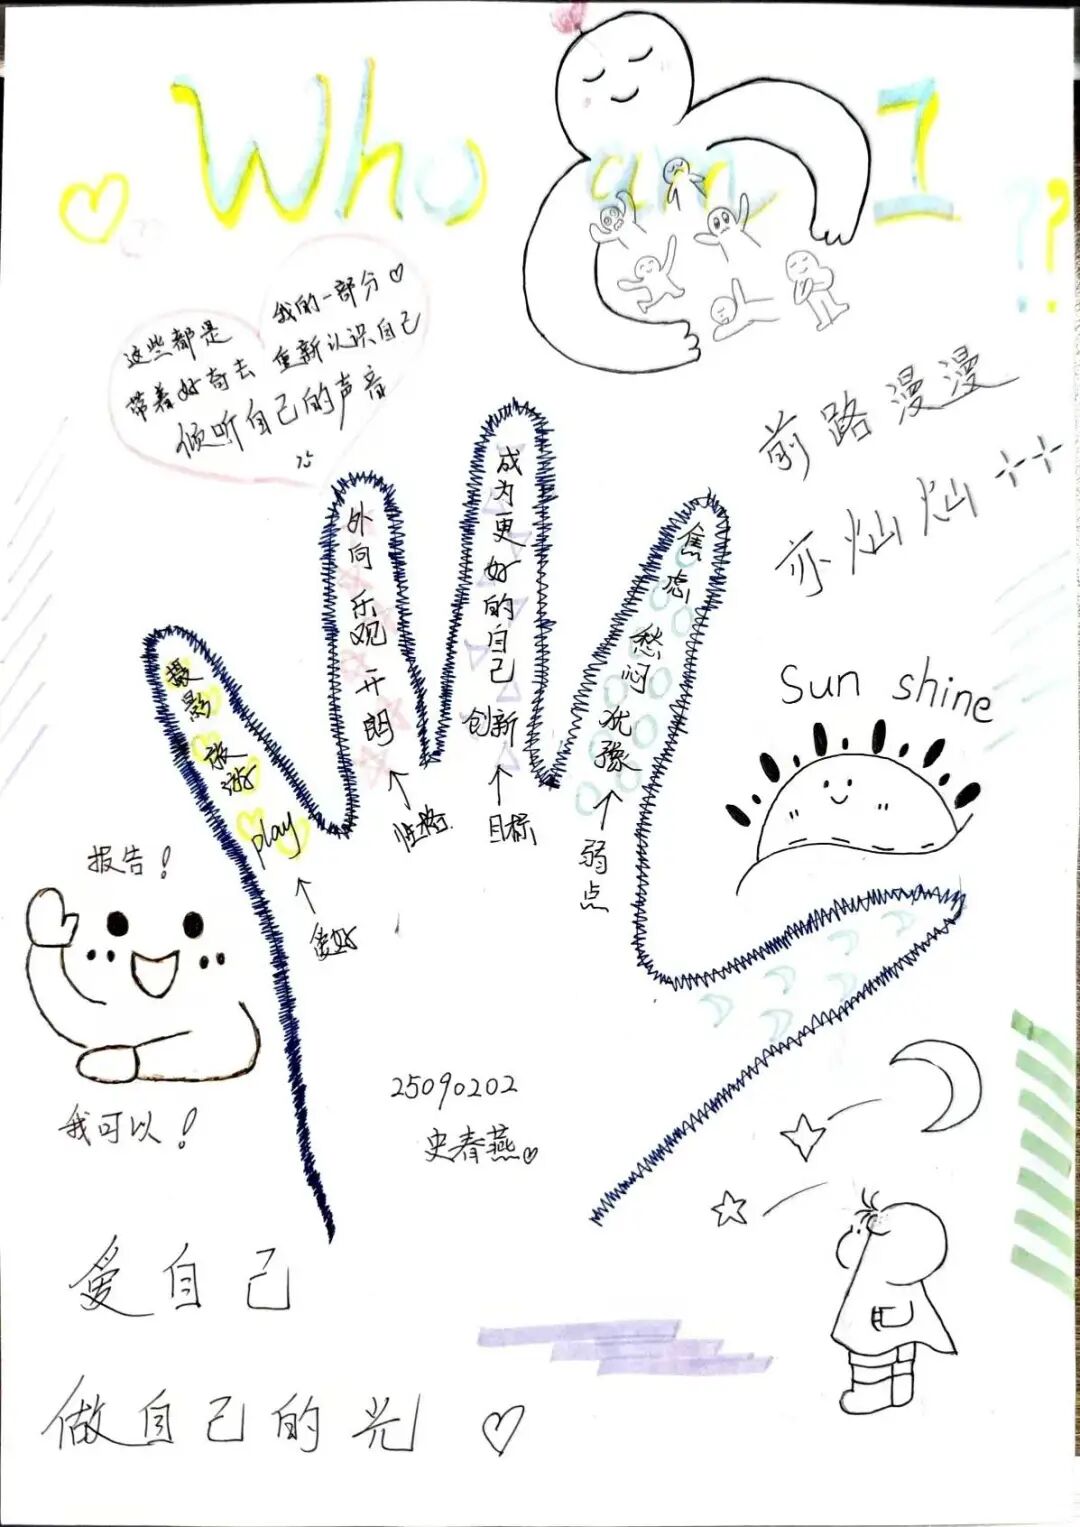 Who am I ??
这些都是 我的一部分
带着好奇去 重新认识自己
倾听自己的声音
前路漫漫
亦灿灿
摄影 旅游 play
爱好
外向 乐观 开朗
性格
成为更好的自己 创新
目标
焦虑 愁闷 犹豫
弱点
Sun shine
报告！
我可以！
25090202
史春燕
爱自己
做自己的光